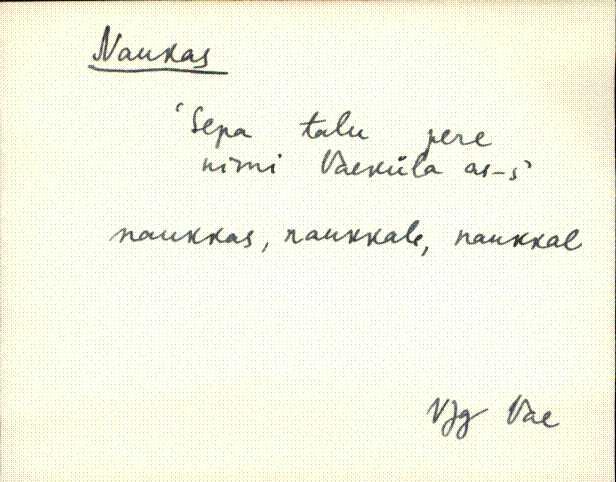 Naukas
'Sepa talu pere
nimi Vaeküla as-s'
naukkas, naukkale, naukkal
VJg Vae